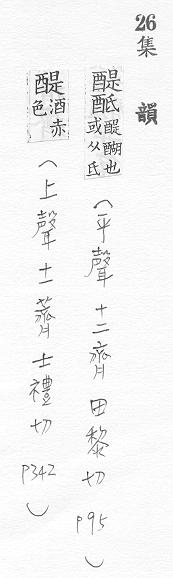 26集韻
醍䣽醍醐也或从氏(平聲十二齊田黎切p95)
醍酒赤色(上聲十一薺士禮切p342)